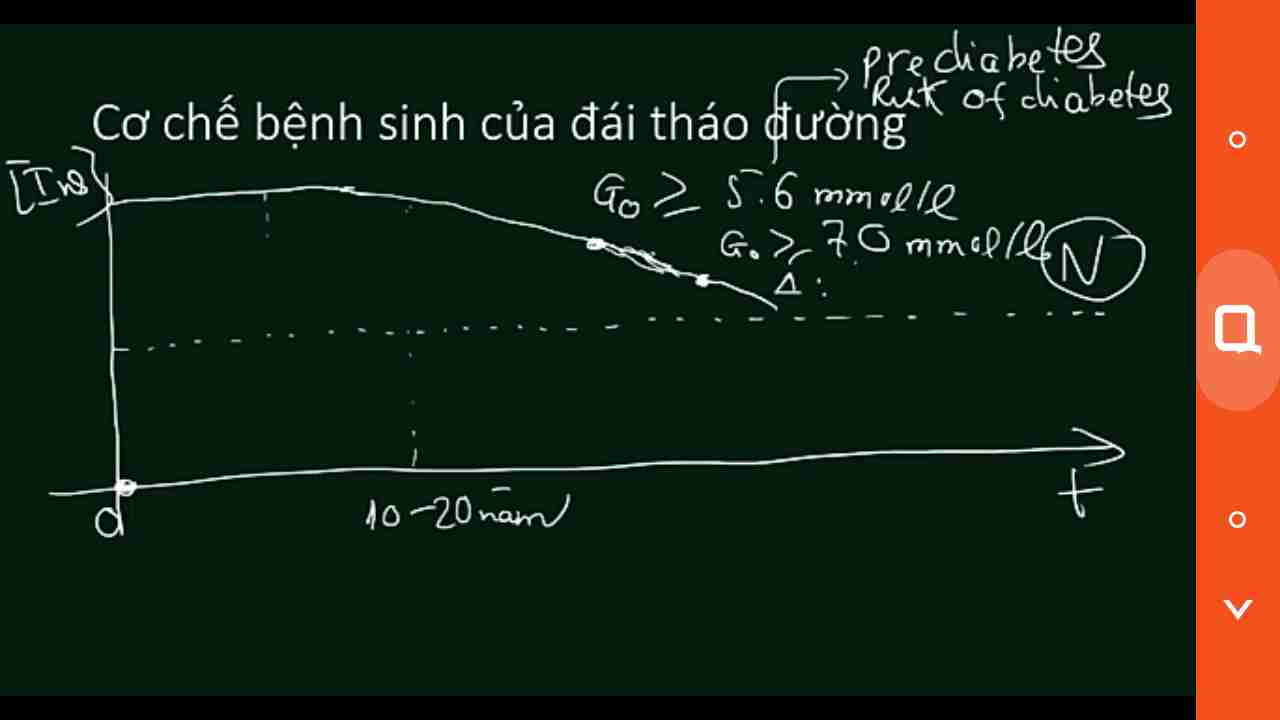 prediabetes
Risk of diabetes
Cơ chế bệnh sinh của đái tháo đường
[Ins]
G₀ ≥ 5.6 mmol/l
G₀ ≥ 7.0 mmol/l
N
Δ:
t
10-20 năm